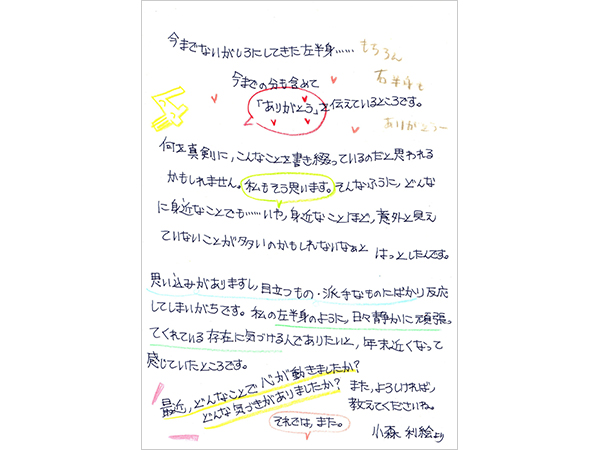 今までないがしろにしてきた左半身…… もちろん
今までの分も含めて 右半身も
「ありがとう」を伝えているところです。
ありがとうー
何を真剣に、こんなことを書き綴っているのだと思われる
かもしれません。私もそう思います。そんなふうに、どんな
に身近なことでも……いや、身近なことほど、意外と見え
ていないことが多いのかもしれないなぁと はっとしたんです。
思い込みがありますし、目立つもの・派手なものにばかり反応
してしまいがちです。私の左半身のように、日々静かに頑張っ
てくれている存在に気づける人でありたいと、年末近くなって
感じていたところです。
最近、どんなことで心が動きましたか?
どんな気づきがありましたか? また、よろしければ、
教えてくださいね。
それでは、また。
小森 利絵より